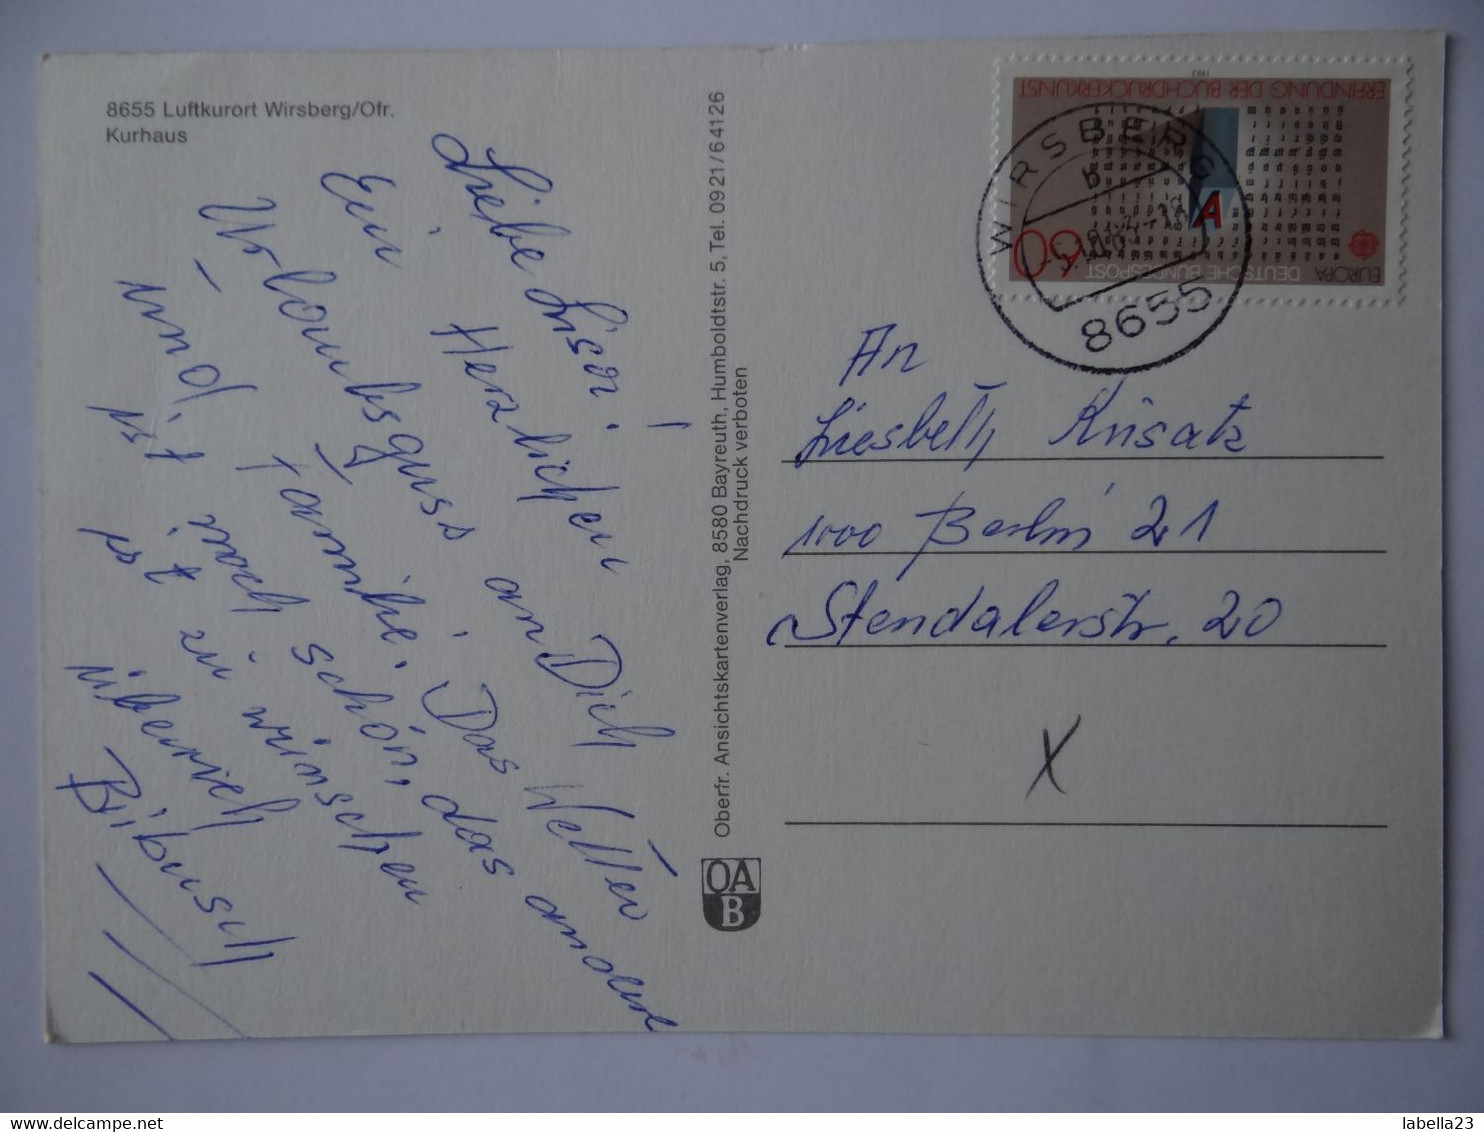 8655 Luftkurort Wirsberg/Ofr.
Kurhaus
Liebe Lisoi!
Ein Herzlichen
Urlaubsgruss an Dich
und Familie. Das Wetter
ist noch schön, das andere
ist zu wünschen
übrich
Bibusch
Oberfr. Ansichtskartenverlag, 8580 Bayreuth, Humboldtstr. 5, Tel. 0921/64126
Nachdruck verboten
OA
B
1983
ERFINDUNG DER BUCHDRUCKERKUNST
A
60
DEUTSCHE BUNDESPOST
EUROPA
WIRSBERG
b
8655
An
Liesbeth Krisatz
1000 Berlin 21
Stendalerstr. 20
X
labella23
www.delcampe.net